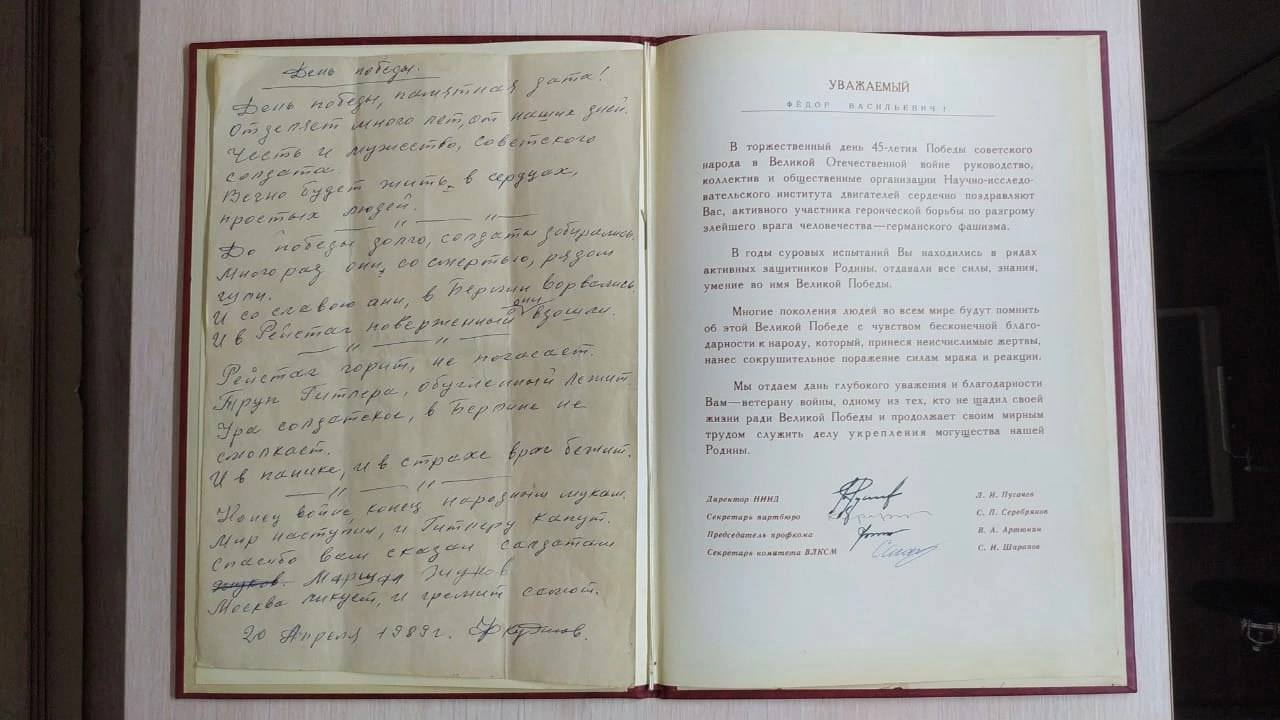 День победы.
День победы, памятная дата!
Отделяет много лет, от наших дней.
Честь и мужество, советского
солдата.
Вечно будет жить, в сердцах,
простых людей.
— " — " —
До победы долго, солдаты добирались.
Много раз они, со смертью, рядом
шли.
И со славою они, в Берлин ворвались.
они
И в Рейстаг поверженный взошли.
— " — " —
Рейстаг горит, не погасает.
Труп Гитлера, обугленный лежит.
Ура солдатское, в Берлине не
смолкает.
И в панике, и в страхе враг бежит.
— " — " —
Конец войне, конец народным мукам.
Мир наступил, и Гитлеру капут.
Спасибо вам сказал солдатам
жуков. Маршал Жуков
Москва ликует, и гремит салют.
20 Апреля 1989г.
УВАЖАЕМЫЙ
ФЁДОР ВАСИЛЬЕВИЧ!
В торжественный день 45-летия Победы советского
народа в Великой Отечественной войне руководство,
коллектив и общественные организации Научно-исследо-
вательского института двигателей сердечно поздравляют
Вас, активного участника героической борьбы по разгрому
злейшего врага человечества—германского фашизма.
В годы суровых испытаний Вы находились в рядах
активных защитников Родины, отдавали все силы, знания,
умение во имя Великой Победы.
Многие поколения людей во всем мире будут помнить
об этой Великой Победе с чувством бесконечной благо-
дарности к народу, который, принеся неисчислимые жертвы,
нанес сокрушительное поражение силам мрака и реакции.
Мы отдаем дань глубокого уважения и благодарности
Вам—ветерану войны, одному из тех, кто не щадил своей
жизни ради Великой Победы и продолжает своим мирным
трудом служить делу укрепления могущества нашей
Родины.
Директор НИИД Л. И. Пугачев
Секретарь партбюро С. П. Серебряков
Председатель профкома В. А. Артюхин
Секретарь комитета ВЛКСМ С. И. Шарапов